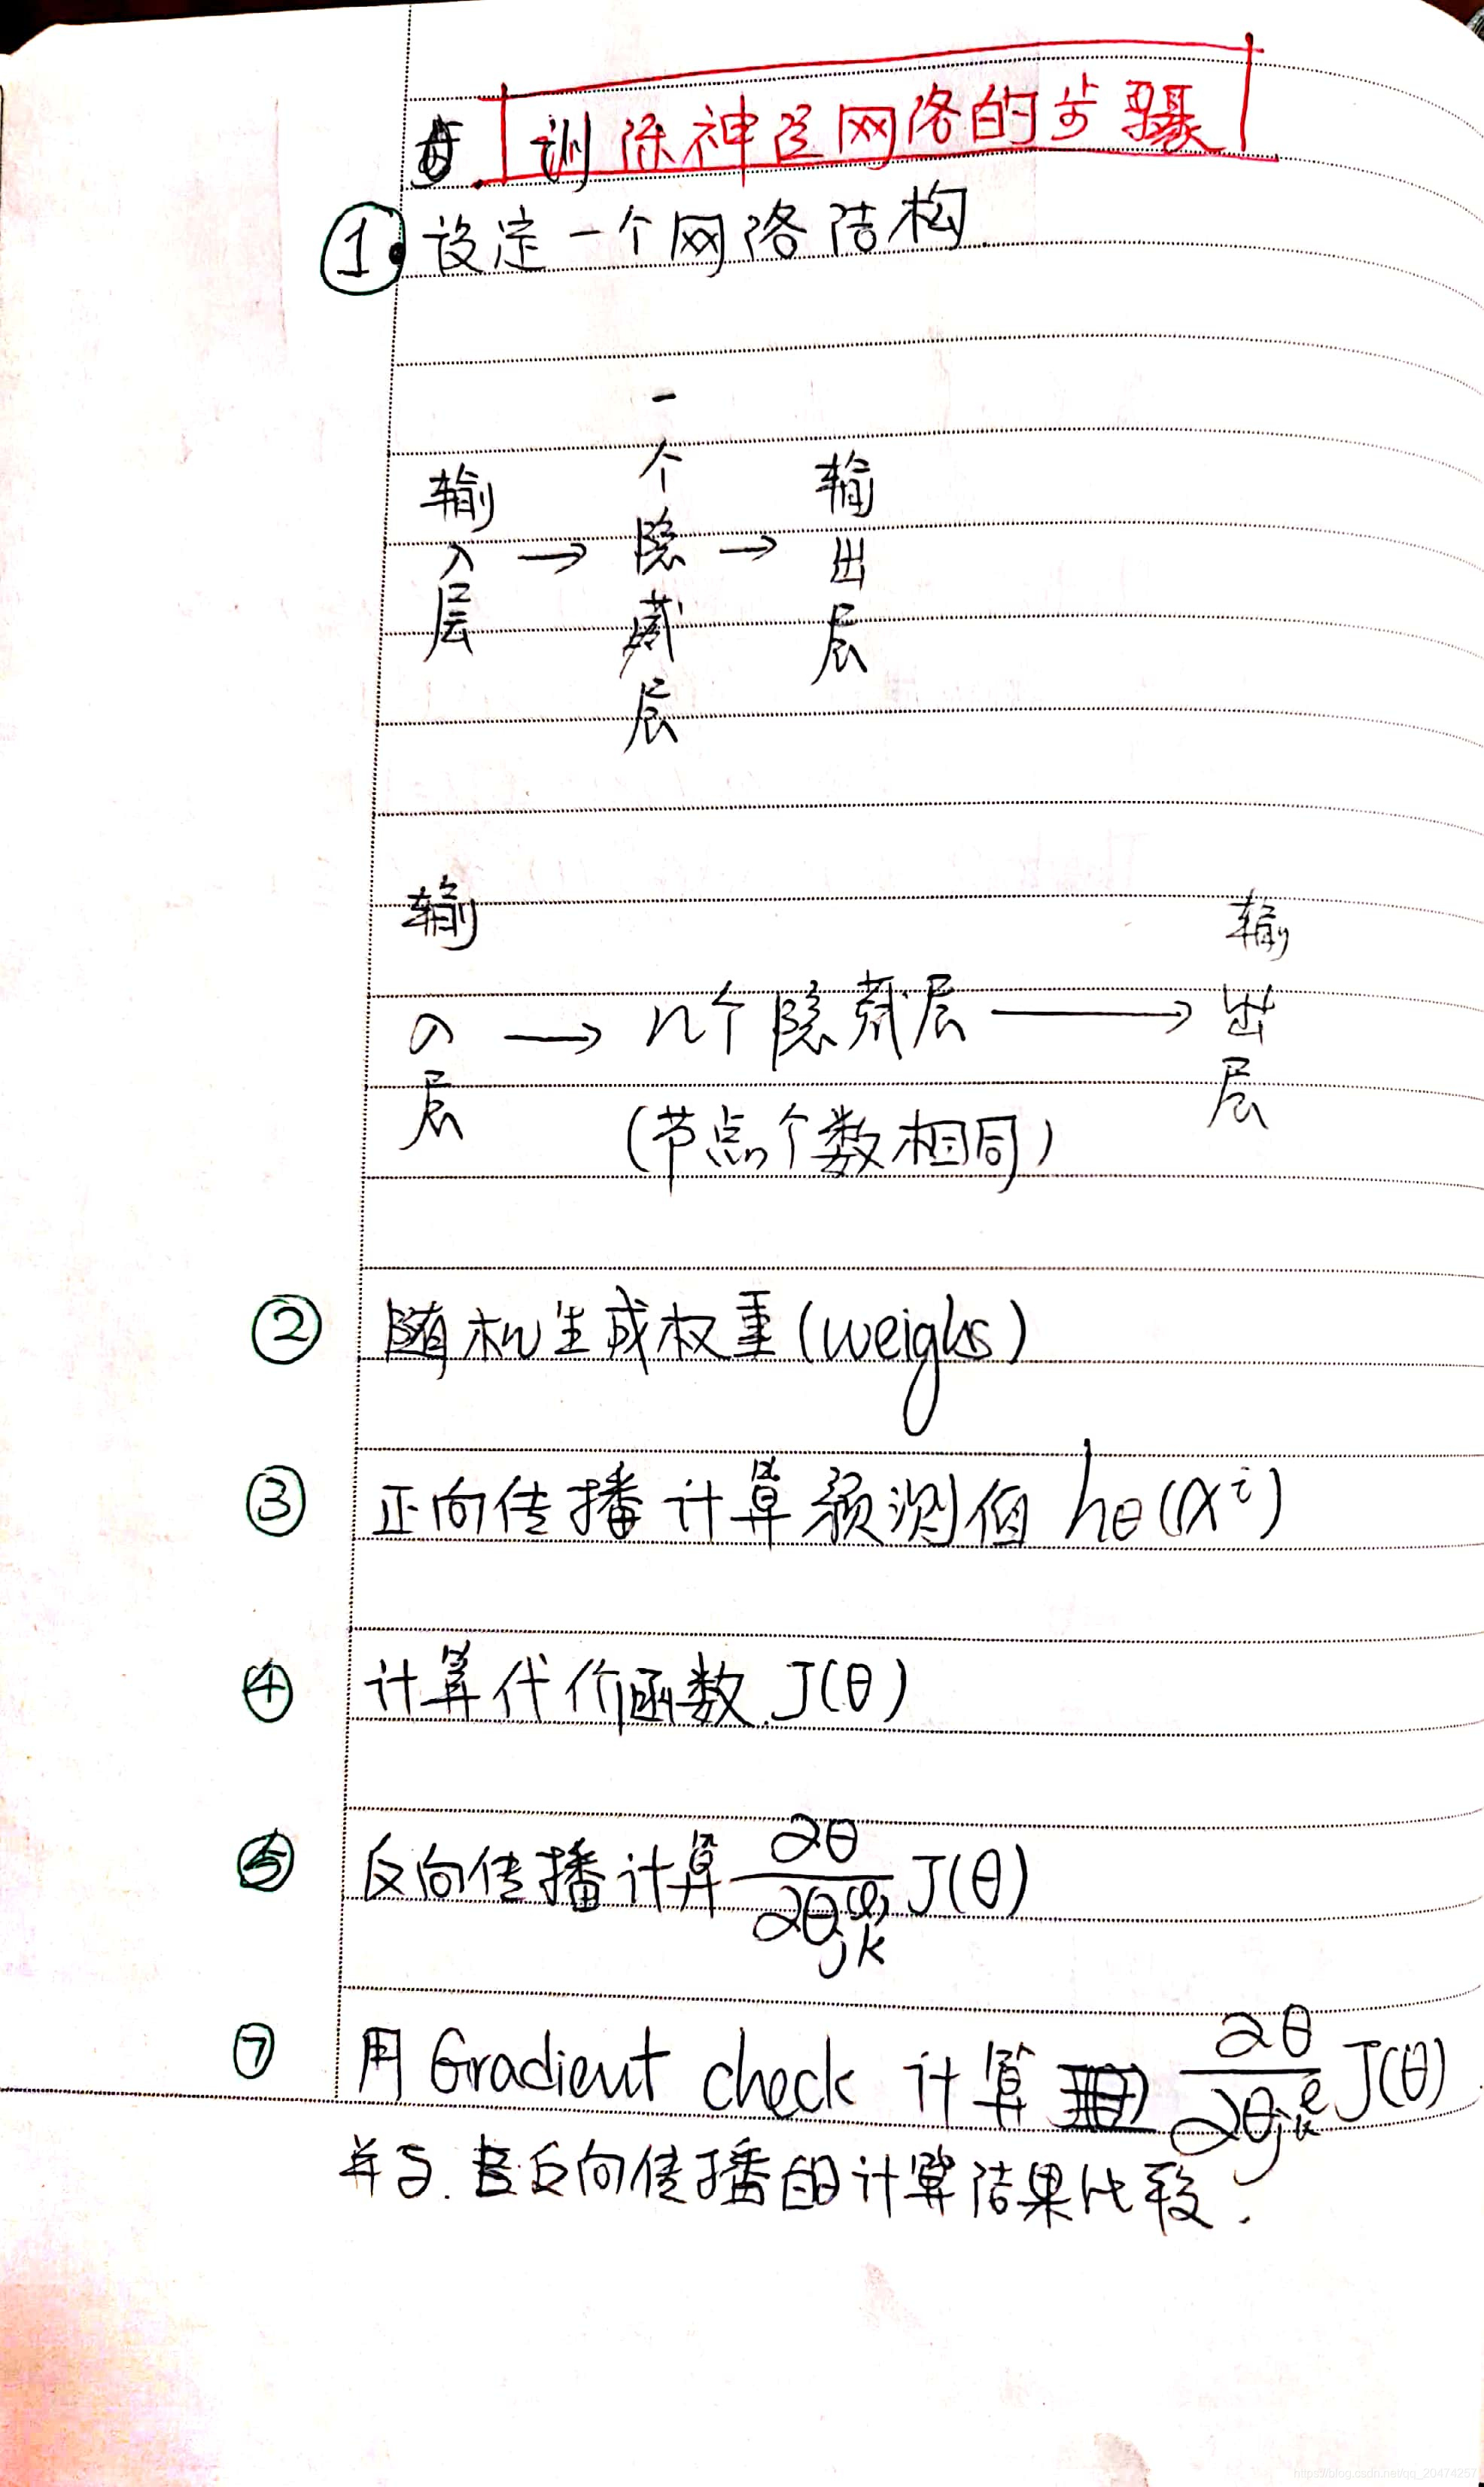 训练神经网络的步骤
① 设定一个网络结构
输入层 → 一个隐藏层 → 输出层
输入层 → n个隐藏层 → 输出层
(节点个数相同)
② 随机生成权重(weighs)
③ 正向传播计算预测值 hθ(x^i)
④ 计算代价函数 J(θ)
⑤ 反向传播计算 ∂θ/∂θ_jk^(l) J(θ)
⑦ 用 Gradient check 计算 ∂θ/∂θ_jk^l J(θ)
并与反向传播的计算结果比较.
https://blog.csdn.net/qq_20474257